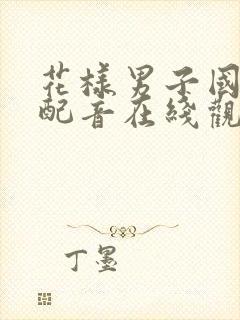 花樣男子國
配音在綫觀
丁墨